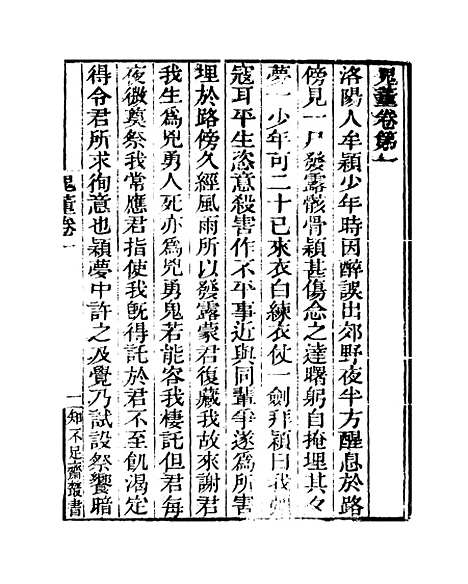 鬼董卷第一
洛陽人牟穎少年時因醉誤出郊野夜半方醒息於路
傍見一尸發露骸骨穎甚傷念之達曙躬自掩埋其夕
夢一少年可二十已來衣白練衣仗一劍拜穎曰我
寇耳平生恣意殺害作不平事近與同輩爭遂爲所害
埋於路傍久經風雨所以發露蒙君復藏我故來謝君
我生爲兇勇人死亦爲兇勇鬼若能容我棲託但君每
夜微奠祭我常應君指使我旣得託於君不至飢渴定
得令君所求徇意也穎夢中許之及覺乃試設祭饗暗
鬼董卷一
一
知不足齋叢書